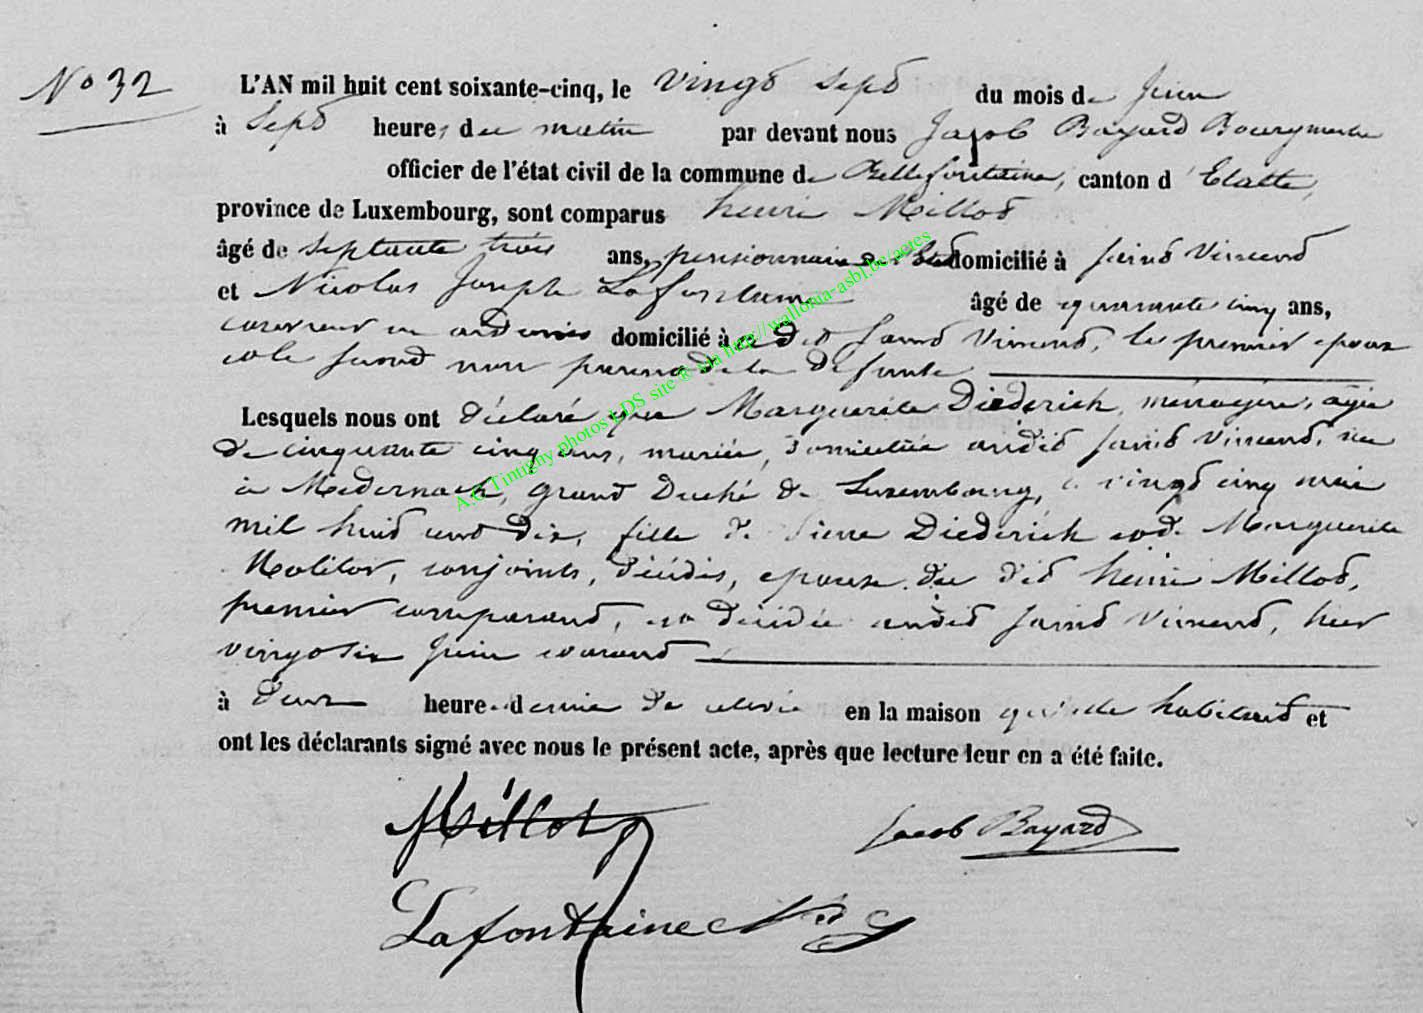 No 32
L'AN mil huit cent soixante-cinq, le vingt sept du mois de Juin
à Sept heures du matin par devant nous Jacob Bayard Bourgmestre
officier de l'état civil de la commune de Bellefontaine, canton d'Etalle,
province de Luxembourg, sont comparus henri Millot
âgé de septante trois ans, pensionnaire de l'Etat domicilié à saint Vincent
et Nicolas Joseph Lafontaine âgé de quarante cinq ans,
couvreur en ardoises domicilié à audit saint Vincent, le premier epoux
et le second non parent de la défunte
Lesquels nous ont déclaré que Marguerite Diederich, ménagère, agée
de cinquante cinq ans, mariée, domiciliée audit saint Vincent, née
à Medernach, grand Duché de Luxembourg, le vingt cinq mai
mil huit cent dix, fille de Pierre Diederich et de Marguerite
Molitor, conjoints, décédés, epouse du dit henri Millot,
premier comparant, est décédée audit saint Vincent, hier
vingt six Juin courant
à deux heures demie de relevée en la maison qu'elle habitait et
ont les déclarants signé avec nous le présent acte, après que lecture leur en a été faite.
Millot Jacob Bayard
Lafontaine N J
A.G Tintigny photos LDS site & via http://wallonia-asbl.be/actes